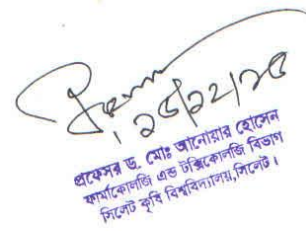 ২৫/১২/২৫
প্রফেসর ড. মোঃ আনোয়ার হোসেন
ফার্মাকোলজি এন্ড টক্সিকোলজি বিভাগ
সিলেট কৃষি বিশ্ববিদ্যালয়, সিলেট।